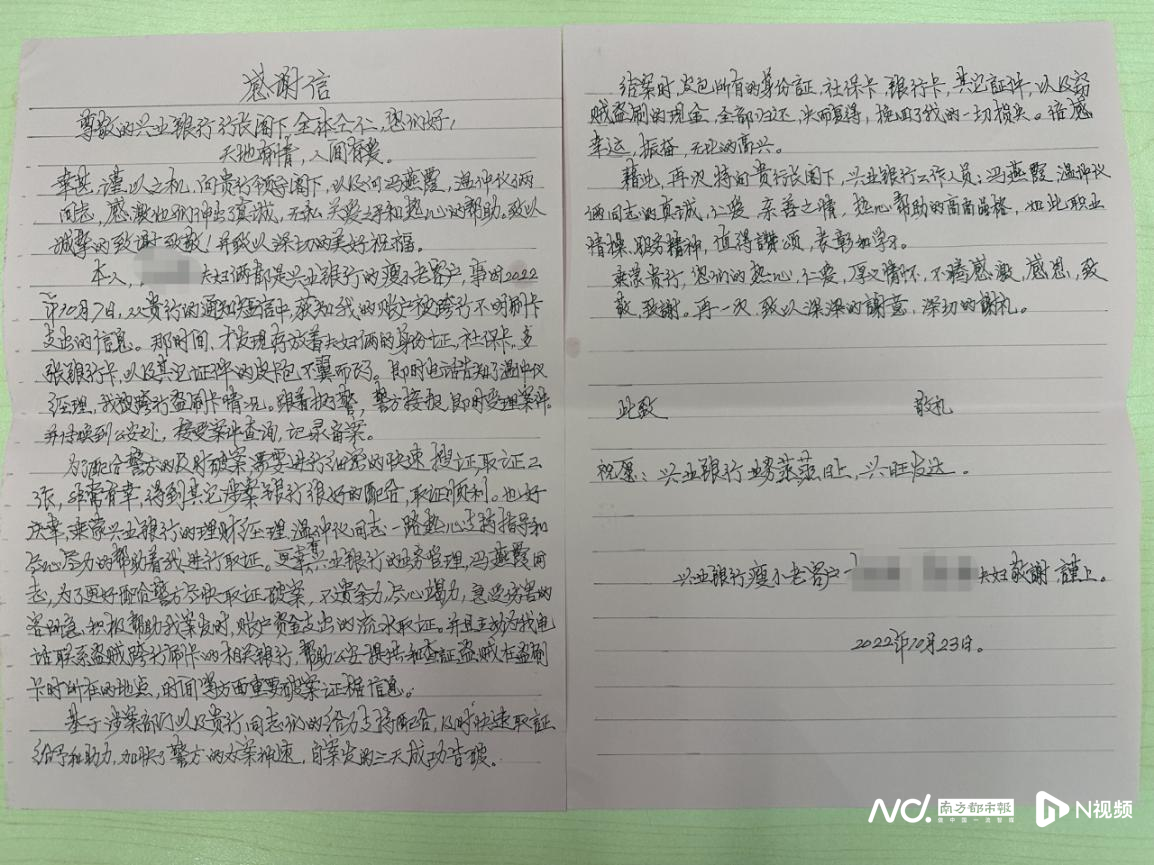 感谢信
尊敬的兴业银行行长阁下,全体仝仁,您们好!
天地有情,人间有爱。
幸甚,谨以之机,向贵行领导阁下,以及向冯燕霞,温仲仪两
同志,感激他们伸出了真诚,无私关爱之手和热心的帮助。致以
诚挚的致谢致敬!并致以深切的美好祝福。
本人, 夫妇俩都是兴业银行的瘦小老客户,事由2022
年10月7日,从贵行的通知短信中,获知我的账户被跨行不明刷卡
支出的信息。那时间,才发现存放着夫妇俩的身份证,社保卡,多
张银行卡,以及其它证件的皮卡包不翼而飞。即时电话告知了温仲仪
经理,我被跨行盗刷卡情况。跟着报了警,警方接报,即时受理案件。
并传唤到公安处,接受案件查询,记录备案。
为了配合警方的及时破案,需要进行细密的快速搜证取证工
张,非常有幸,得到其它涉案银行很好的配合,取证顺利。也好
庆幸,乘蒙兴业银行的理财经理,温仲仪同志一路热心支持指导和
尽心尽力的帮助着我进行取证。更幸甚兴业银行的业务管理,冯燕霞同
志,为了更好配合警方尽快取证破案,不遗余力,尽心竭力,急受害的
客所急,积极帮助我案发时,账户资金支出的流水取证。并且主动为我电
话联系盗贼跨行刷卡的相关银行,帮助公安提供和查证盗贼在盗刷
卡时所在的地点,时间等方面重要破案证据信息。
基于涉案部门以及贵行同志们的给力支持配合,及时快速取证
给予和助力,加快了警方的办案神速,自案发的三天成功告破。
结案时,皮包所有的身份証,社保卡,银行卡,其它証件,以及窃
贼盗刷的现金,全部归还,失而复得,挽回了我的一切损失。倍感
幸运,振奋,无比的高兴。
藉此,再次特向贵行长阁下,兴业银行工作人员:冯燕霞,温仲仪
俩同志的真诚,仁爱,亲善之情,热心帮助的高尚品格,如此职业
情操、服务精神,值得讚颂,表彰和学习。
乘蒙贵行,您们的热心,仁爱,厚义情怀,不腾感激,感恩,致
敬,致謝。再一次,致以深深的謝意,深切的謝礼。
此致 敬礼
祝愿:兴业银行业务蒸蒸日上,兴旺发达。
兴业银行瘦小老客户 夫妇敬謝 謹上。
2022年10月23日。
ND. 南方都市報
N视频